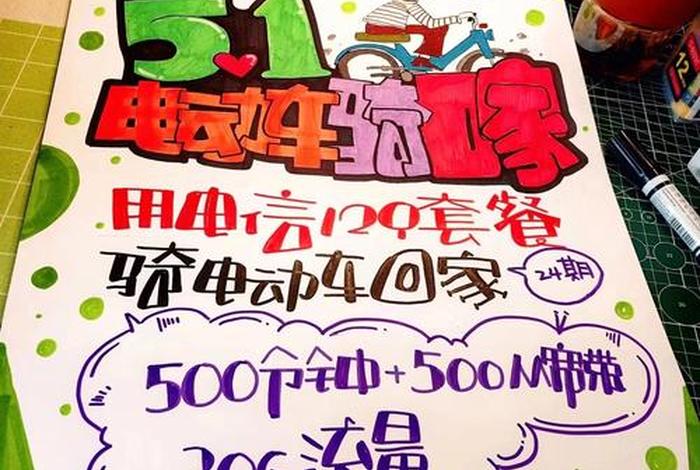 5.1
电动车骑回家
用电信129套餐
骑电动车回家 24期
500分钟+500M宽带
20G流量